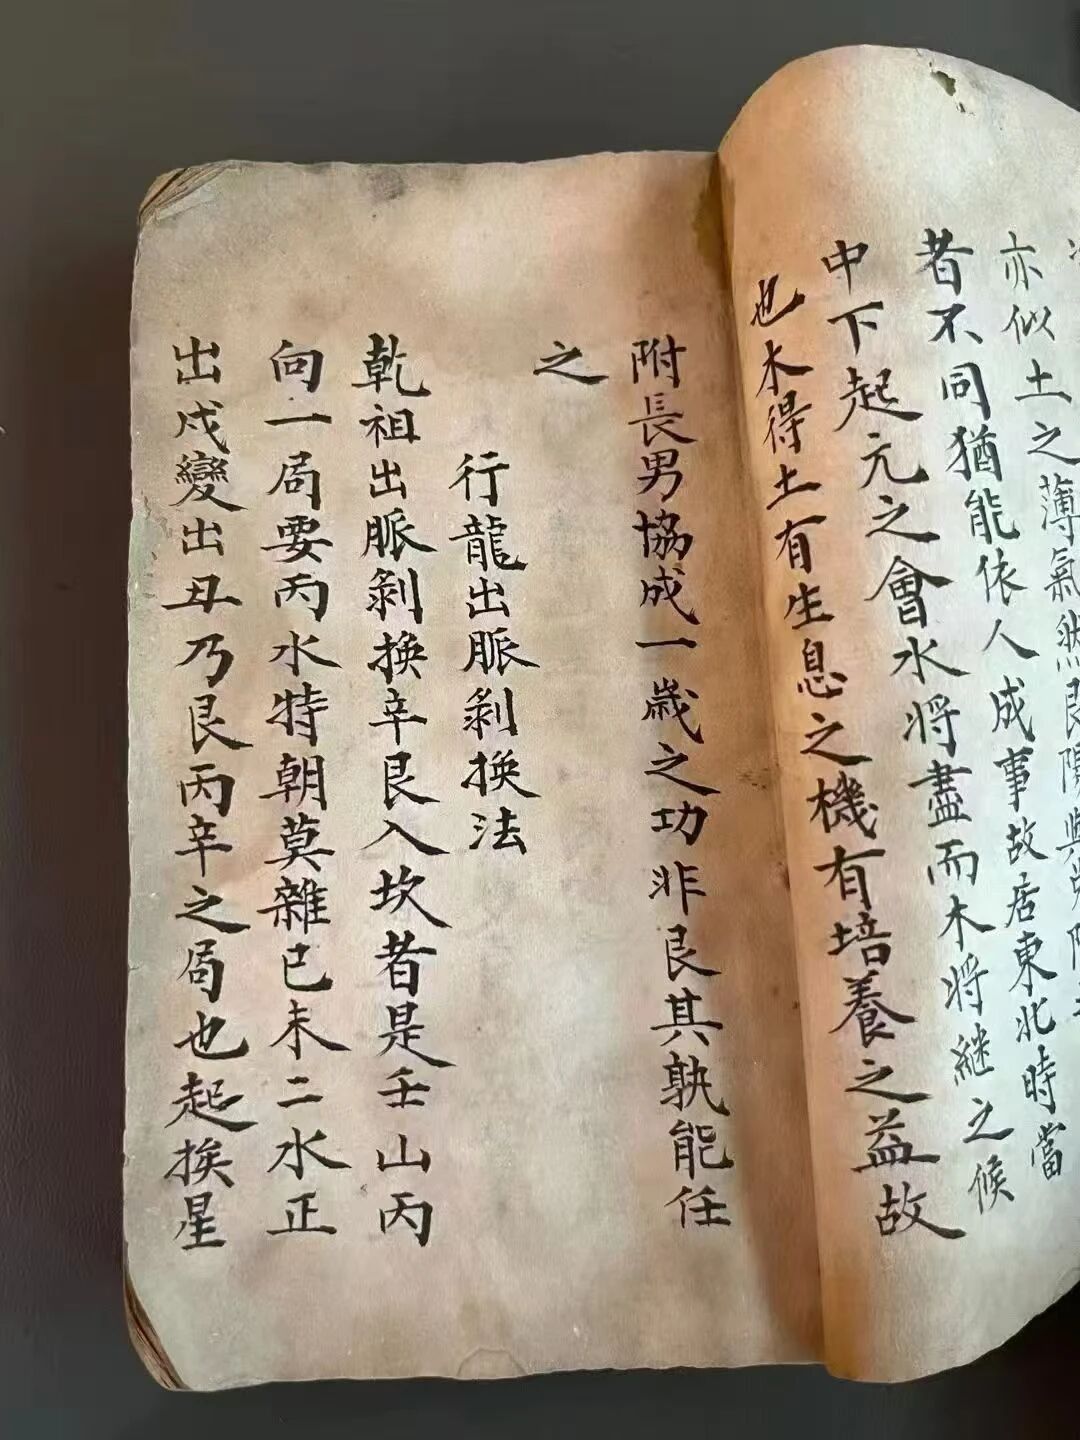 亦似土之薄氣然艮陽與
者不同猶能依人成事故居東北時當
中下起元之會水將盡而木將継之候
也木得土有生息之機有培養之益故
附長男協成一歲之功非艮其孰能任
之
行龍出脈剝換法
乾祖出脈剝換辛艮入坎者是壬山丙
向一局要丙水特朝莫雜巳未二水正
出戍變出丑乃艮丙辛之局也起挨星